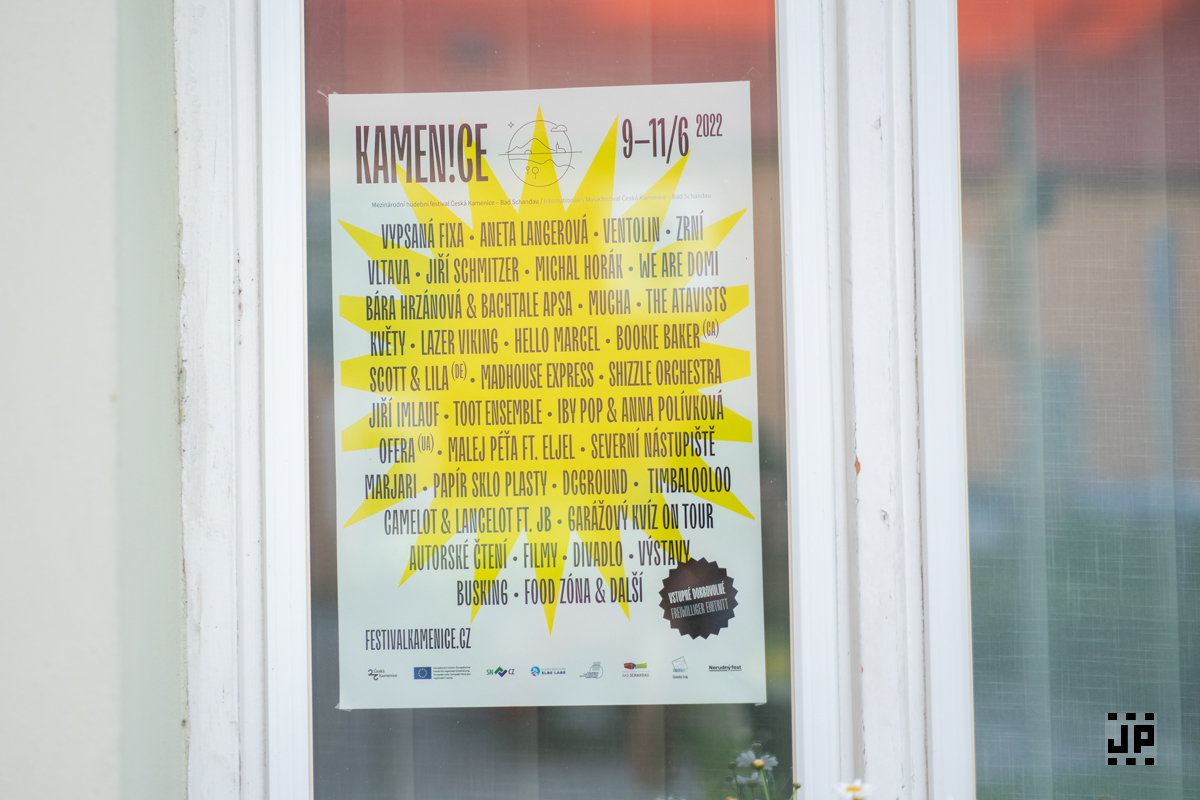 KAMEN!CE
9–11/6 2022
Mezinárodní hudební festival Česká Kamenice – Bad Schandau / Internationales Musikfestival Česká Kamenice – Bad Schandau
VYPSANÁ FIXA • ANETA LANGEROVÁ • VENTOLIN • ZRNÍ
VLTAVA • JIŘÍ SCHMITZER • MICHAL HORÁK • WE ARE DOMI
BÁRA HRZÁNOVÁ & BACHTALE APSA • MUCHA • THE ATAVISTS
KVĚTY • LAZER VIKING • HELLO MARCEL • BOOKIE BAKER (CA)
SCOTT & LILA (DE) • MADHOUSE EXPRESS • SHIZZLE ORCHESTRA
JIŘÍ IMLAUF • TOOT ENSEMBLE • IBY POP & ANNA POLÍVKOVÁ
OFERA (UA) • MALEJ PÉŤA FT. ELJEL • SEVERNÍ NÁSTUPIŠTĚ
MARJARI • PAPÍR SKLO PLASTY • DCGROUND • TIMBALOOLOO
CAMELOT & LANCELOT FT. JB • GARÁŽOVÝ KVÍZ ON TOUR
AUTORSKÉ ČTENÍ • FILMY • DIVADLO • VÝSTAVY
BUSKING • FOOD ZÓNA & DALŠÍ
VSTUPNÉ DOBROVOLNÉ
FREIWILLIGER EINTRITT
FESTIVALKAMENICE.CZ
Česká Kamenice
SN CZ
ELBE LABE
BAD SCHANDAU
Nerudný fest
JP